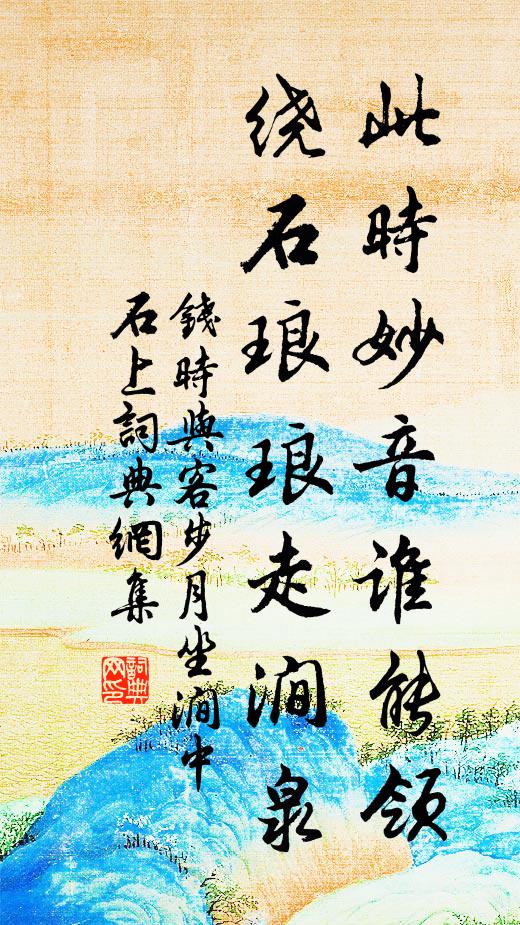 此時妙音谁能领
绕石琅琅走涧泉
錢時與客步月坐澗中
石上詞典網集
詞典网印